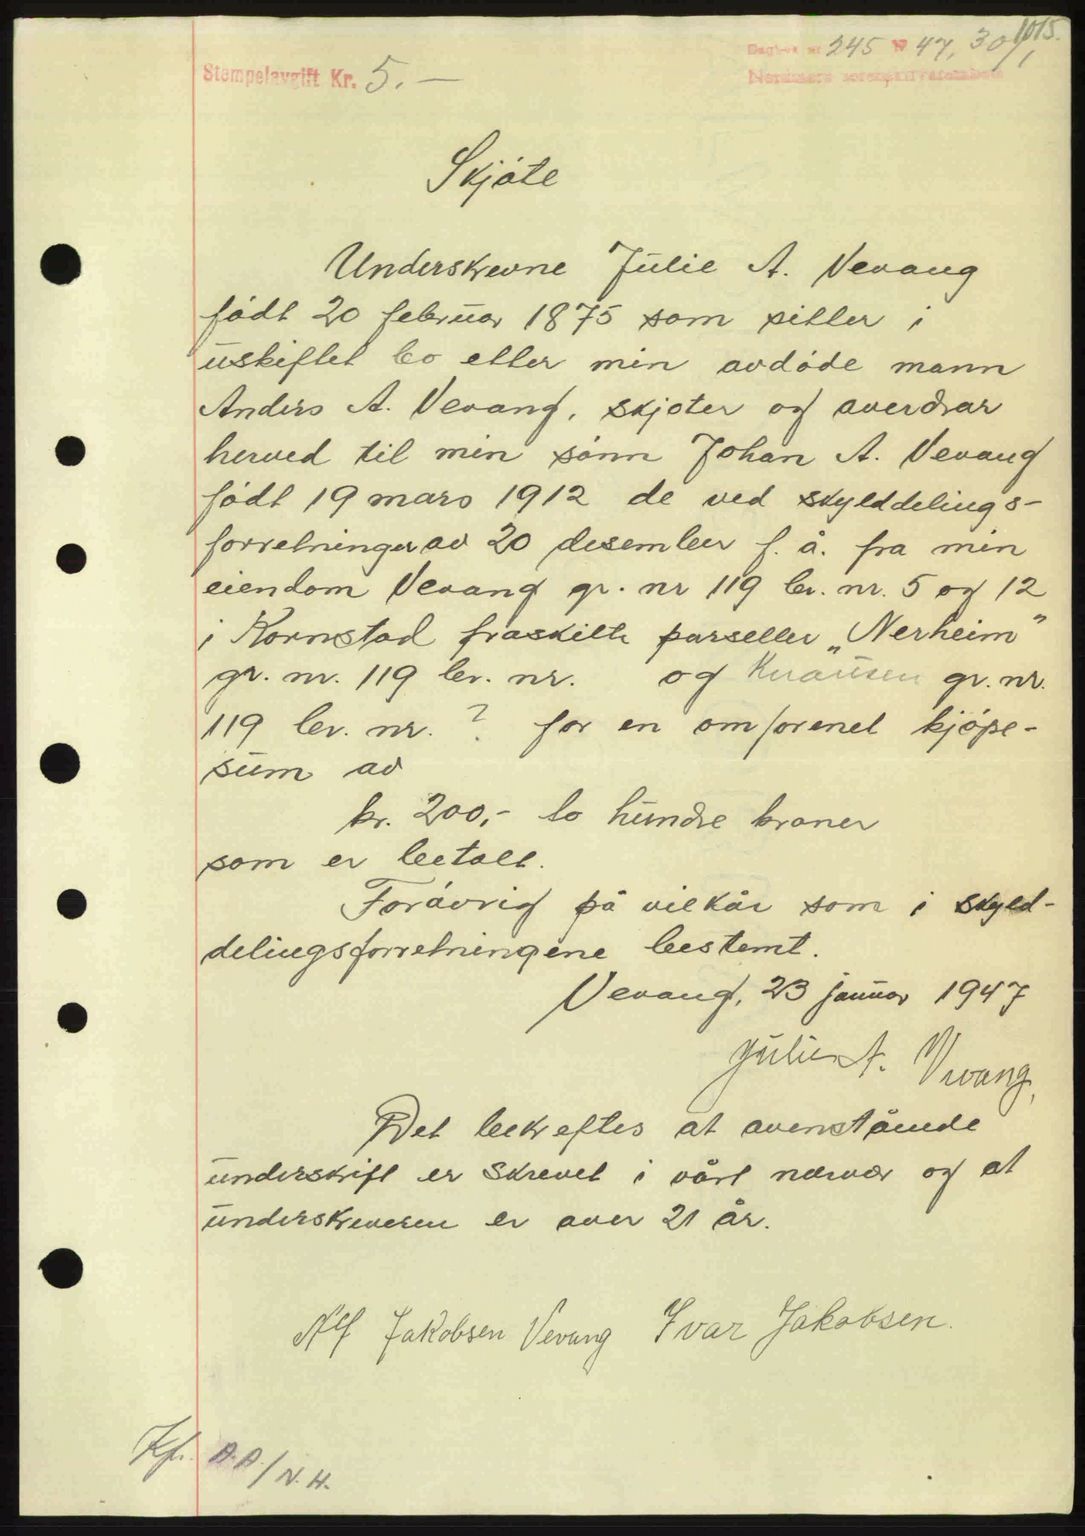 1015.
Dagbok nr 245 19 47, 30/1
Stempelavgift Kr. 5.—
Nordmøre sorenskriverembete
Skjöte
Underskrevne Julie A. Vevang
födt 20 februar 1875 som sitter i
uskiftet bo etter min avdöde mann
Anders A. Vevang, skjöter og averdrar
herved til min sönn Johan A. Vevang
födt 19 mars 1912 de ved skylddelings-
forretninger av 20 desember f. å. fra min
eiendom Vevang gr. nr 119 br. nr. 5 og 12
i Kornstad fraskilte parseller „Nerheim"
gr. nr. 119 br. nr. og Knausen gr. nr.
119 br. nr. ? for en omforenet kjöpe-
sum av
kr. 200,- to hundre kroner
som er betalt.
Foråvrig på vilkår som i skyld-
delingsforretningene bestemt.
Vevang, 23 januar 1947
Julie A. Vevang.
Det bekreftes at avenstående
underskrift er skrevet i vårt nærvær og at
underskriveren er over 21 år.
Alf Jakobsen Vevang Ivar Jakobsen.
Kf. A.A./N.H.